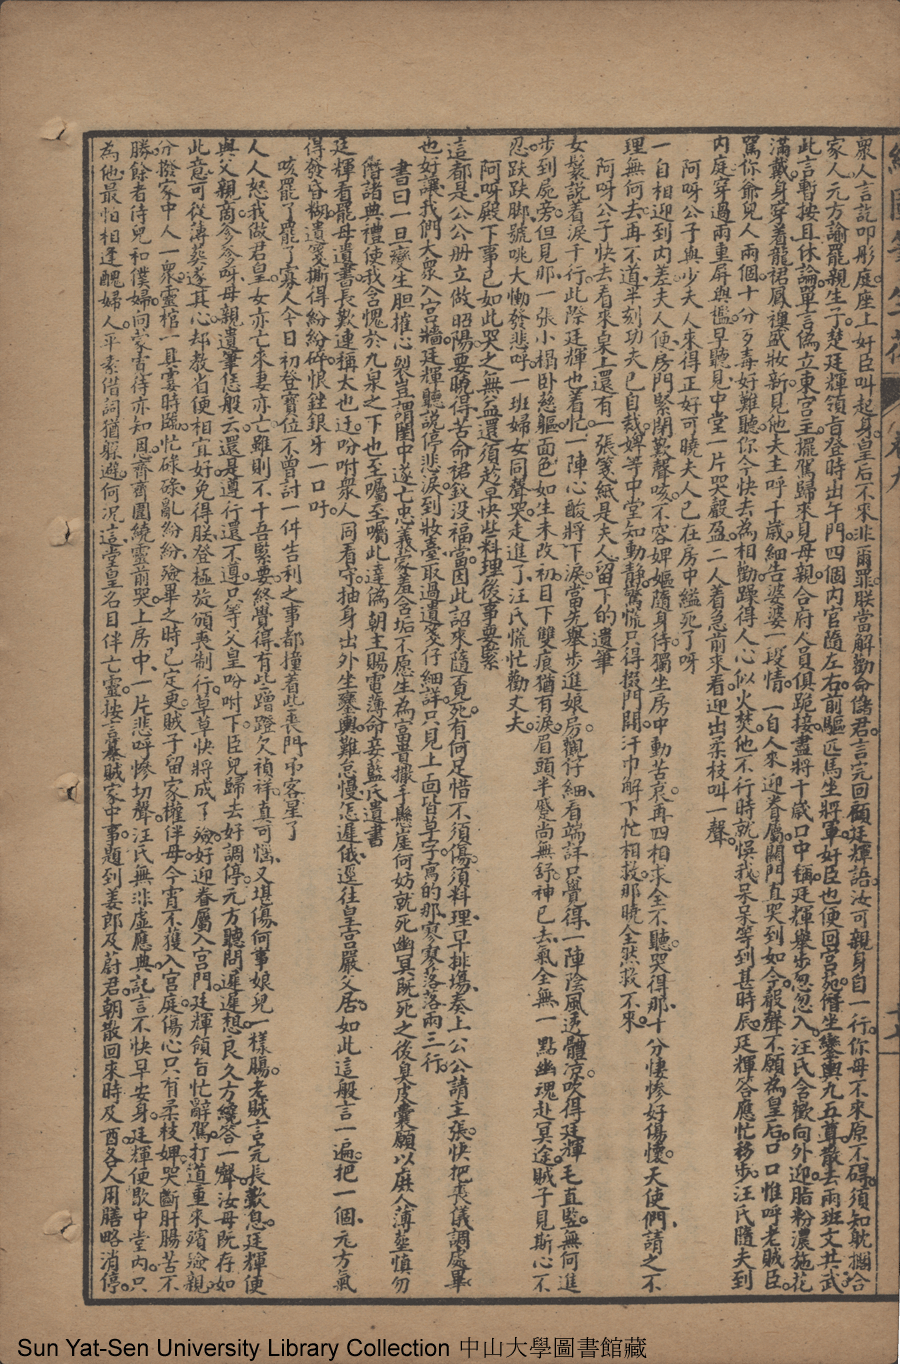 繪圖筆生花
卷九
眾人言訖叩彤庭座上奸臣叫起身皇后不來非爾罪朕當解勸命儲君言完回顧廷輝語汝可親身自一行你母不來原不碍須知耽擱合
家人元方諭罷親生子楚廷輝領旨登時出午門四個內官隨左右前驅匹馬生將軍奸臣也便回宮苑僭坐鑾輿九五尊散去兩班文共武
此言暫按且休論單言偽立東宮主擺駕歸來見母親合府人員俱跪接盡將千歲口中稱廷輝舉步忽忽入汪氏含歡向外迎脂粉濃施花
滿戴身穿着龍裙鳳襖盛妝新見他夫主呼千歲細告婆婆一段情自人來迎眷屬關門直哭到如今般聲不願為皇后口口惟呼老賊臣
罵你爺兒人兩個十分歹毒好難聽你今快去為相勸躁得人心似火焚他不行時就悞我呆呆等到甚時辰廷輝答應忙移步汪氏隨夫到
內庭穿過兩重屏與檻早聽見中堂一片哭聲盈二人着急前來看迎出柔枝叫一聲
阿呀公子與少夫人來得正好可曉夫人已在房中縊死了呀
一自相迎到內差夫人便房門緊閉歎聲咳不容婢嫗隨身侍獨坐房中動苦哀再四相求全不聽哭得那十分悽慘好傷懷天使們請之不
理無何去再不道半刻功夫已自裁婢等中堂知動靜驚慌只得掇門開汗巾解下忙相救那曉全然救不來
阿呀公子快去看來桌上還有一張箋紙是夫人留下的遺筆
女鬟說着淚千行此際廷輝也着忙一陣心酸將下淚當先舉步進娘房觀仔細看端詳只覺得一陣陰風透體涼吹得廷輝毛直豎無何進
步到屍旁但見那一張小榻卧慈軀面色如生未改初目下雙痕猶有淚眉頭半蹙尚無舒神已去氣全無一點幽魂赴冥途賊子見斯心不
忍跌跌脚號咷大慟發悲呼一班婦女同聲哭走進了汪氏慌忙勸丈夫
阿呀殿下事已如此哭之無益還須趁早快些料理後事要緊
這都是公公册立做昭陽要曉得苦命裙釵沒福當因此詔來隨覓死有何足惜不須傷須料理早排塲奏上公公請主張快把喪儀調處畢
也好讓我們大眾入宮牆廷輝聽說停悲淚到妝臺取過遺箋仔細詳只見上面皆草字寫的那寥寥落落兩三行
書曰一旦變生胆摧心裂豈謂閨中遂亡忠義蒙羞含垢不原生為富貴撒手懸崖何妨就死幽冥既死之後臭皮囊願以庶人薄塟慎勿
僭諸典禮使我含愧於九泉之下也至囑至囑此達偽朝主賜電薄命妾藍氏遺書
廷輝看罷母遺書長歎連稱太也迂吩咐眾人同看守抽身出外坐鑾輿難怠慢怎遲俄逕往皇宮嚴父居如此這般言一遍把一個元方氣
得發昏糊遺箋撕得紛紛碎恨銼銀牙一口吁
咳罷了罷了寡人今日初登寶位不曾討一件吉利之事都撞着此喪門吊客星了
人人怒我做君皇女亦亡來妻亦亡雖則不干吾緊要終覺得有些蹭蹬欠禎祥真可惱又堪傷何事娘兒一樣腸老賊言完長歎息廷輝便
與父親商今今呀母親遺筆恁般云還是遵行還不遵只等父皇吩咐下臣兒歸去好調停元方聽問遲遲想良久方纔答一聲汝母既存如
此意可從薄葬遂其心却教省便相宜好免得朕登極旋頒喪制行草草快將成了殮好迎眷屬入宮門廷輝領旨忙辭駕打道重來殯殮親
分撥家中人一眾靈棺一具霎時臨忙碌碌亂紛紛殮畢之時已定更賊子留家權伴母今宵不獲入宮庭傷心只有柔枝婢哭斷肝腸苦不
勝餘者侍兒和僕婦向蒙寬待亦知恩齊齊團繞靈前哭上房中一片悲呼慘切聲汪氏無非虛應典記言不快早安身廷輝便歇中堂內只
為他最怕相逢醜婦人平素借詞猶躲避何況這堂皇名目伴亡靈按言纂賊家中事題到姜郎及蔚君朝散回來時及酉各人用膳略消停
Sun Yat-Sen University Library Collection 中山大學圖書館藏